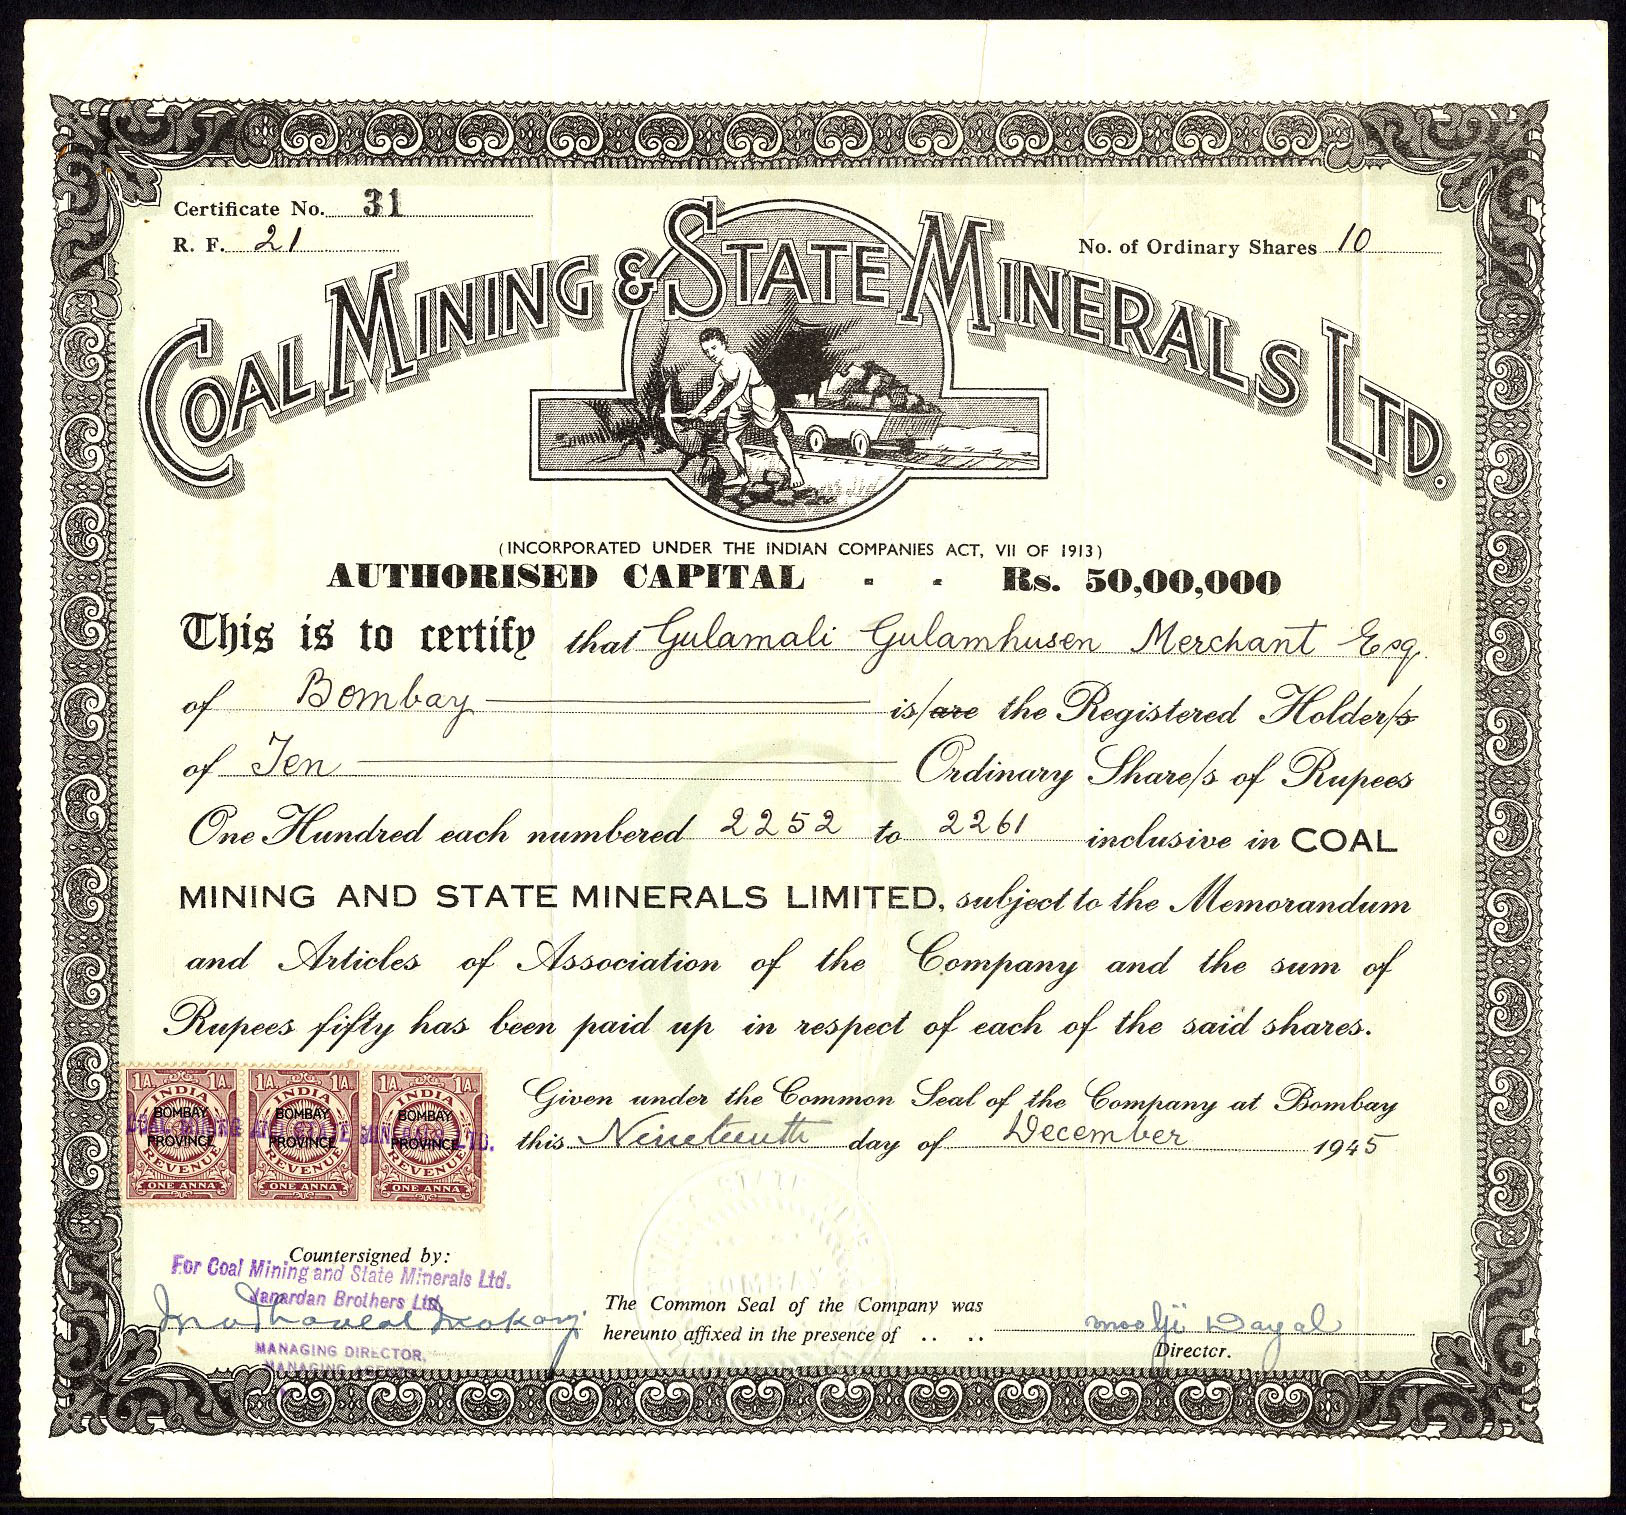 Certificate No. 31
R. F. 21
No. of Ordinary Shares 10
COAL MINING & STATE MINERALS LTD.
(INCORPORATED UNDER THE INDIAN COMPANIES ACT, VII OF 1913)
AUTHORISED CAPITAL - - Rs. 50,00,000
This is to certify that Gulamali Gulamhusen Merchant Esq.
of Bombay is/are the Registered Holder/s
of Ten Ordinary Share/s of Rupees
One Hundred each numbered 2252 to 2261 inclusive in COAL
MINING AND STATE MINERALS LIMITED, subject to the Memorandum
and Articles of Association of the Company and the sum of
Rupees fifty has been paid up in respect of each of the said shares.
Given under the Common Seal of the Company at Bombay
this Nineteenth day of December 1945
1A. 1A. 1A. 1A. 1A. 1A.
INDIA INDIA INDIA
BOMBAY BOMBAY BOMBAY
COAL MINING AND STATE MINERALS LTD.
PROVINCE PROVINCE PROVINCE
REVENUE REVENUE REVENUE
ONE ANNA ONE ANNA ONE ANNA
Countersigned by:
For Coal Mining and State Minerals Ltd.
Janardan Brothers Ltd.
MANAGING DIRECTOR,
MANAGING AGENTS
The Common Seal of the Company was
hereunto affixed in the presence of .. ..
Moolji Dayal
Director.